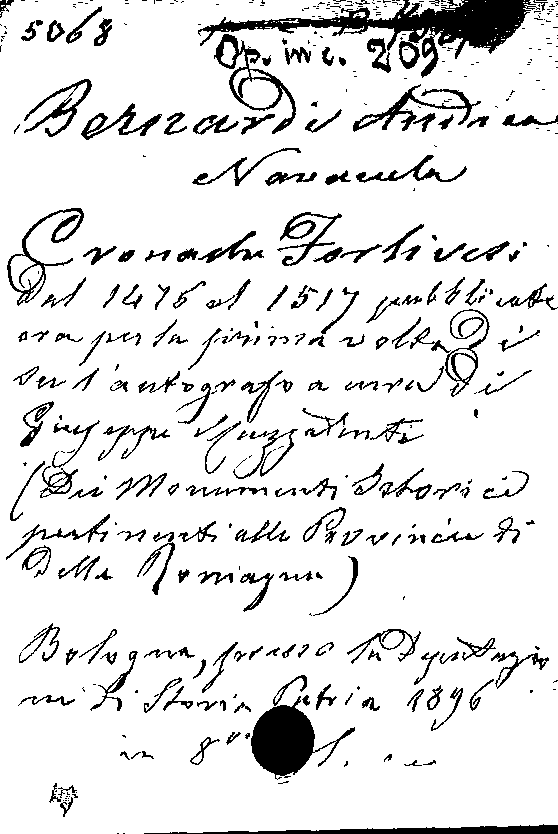 5068
Op. inc. 209
Bernardi Andrea
Novacula
Cronache Forlivesi
dal 1476 al 1517 pubblicate
ora per la prima volta di
su l'autografo a cura di
Giuseppe Mazzatinti
(Dei Monumenti Istorici
pertinenti alle Provincie di
Della Romagna)
Bologna, presso la Deputazio
ne di Storia Patria 1896
in 8°